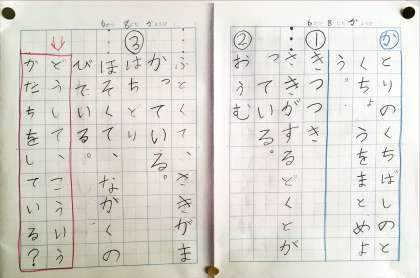 6がつ8にちかようび
か
とりのくちばしのと
くちょうをまとめよ
う。
①
きつつき
…さきがするどくとが
っている。
②
おうむ
…ふとくて、さきがま
がっている。
③
はちどり
…ほそくて、ながくの
びている。
どうして、こういう
かたちをしている?